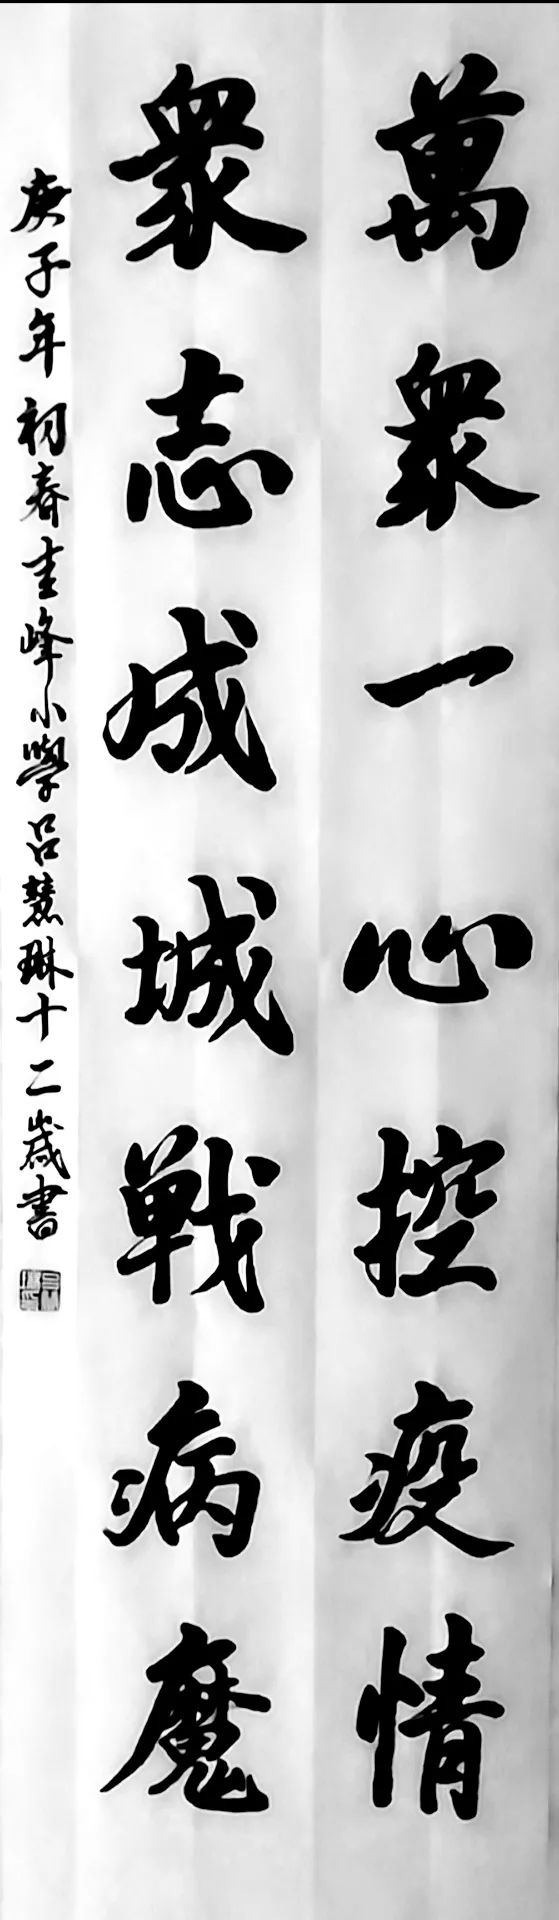 萬眾一心控疫情
眾志成城戰病魔
庚子年初春圭峰小學呂慧琳十二歲書